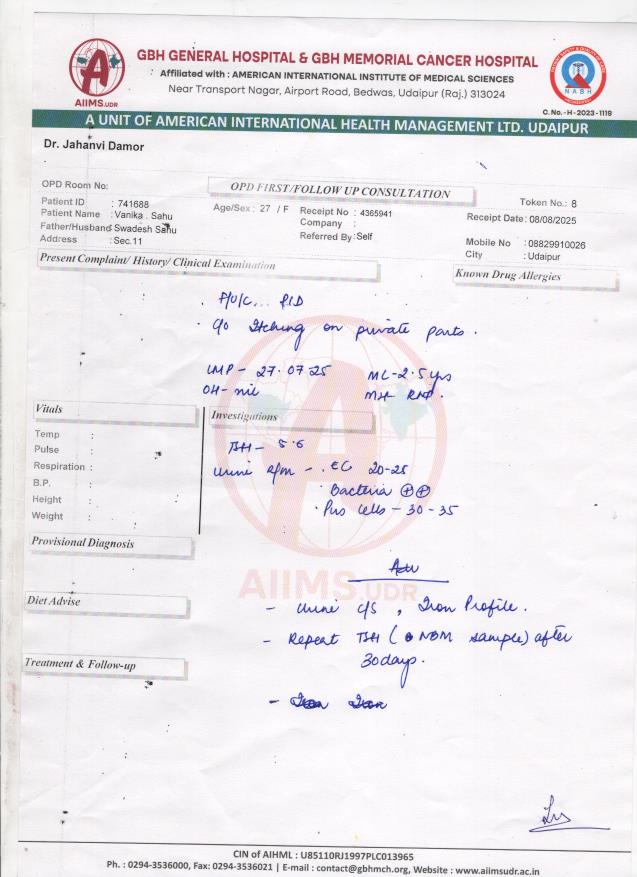 GBH GENERAL HOSPITAL & GBH MEMORIAL CANCER HOSPITAL
Affiliated with : AMERICAN INTERNATIONAL INSTITUTE OF MEDICAL SCIENCES
Near Transport Nagar, Airport Road, Bedwas, Udaipur (Raj.) 313024
AIIMS.UDR
NABH
C. No.-H-2023-1119
A UNIT OF AMERICAN INTERNATIONAL HEALTH MANAGEMENT LTD. UDAIPUR
Dr. Jahanvi Damor
OPD Room No:
OPD FIRST/FOLLOW UP CONSULTATION
Token No.: 8
Patient ID : 741688
Age/Sex : 27 / F
Receipt No : 4365941
Receipt Date: 08/08/2025
Patient Name : Vanika . Sahu
Company :
Father/Husband : Swadesh Sahu
Referred By : Self
Mobile No : 08829910026
Address : Sec.11
City : Udaipur
Present Complaint/ History/ Clinical Examination
Known Drug Allergies
PID
C/o Itching on private parts.
LMP - 27.07.25 ML - 2.5 yrs
OH - nil MH
Vitals
Investigations
Temp :
Pulse :
Respiration :
B.P. :
Height :
Weight :
TSH - 5.6
Urine R/m - . EC 20-25
. Bacteria ⊕⊕
. Pus Cells - 30-35
Provisional Diagnosis
AIIMS.UDR
Adv
Diet Advise
- Urine C/S , Iron Profile.
- Repeat TSH ( NBM sample) after
30 days.
Treatment & Follow-up
CIN of AIHML : U85110RJ1997PLC013965
Ph. : 0294-3536000, Fax: 0294-3536021 | E-mail : contact@gbhmch.org, Website : www.aiimsudr.ac.in